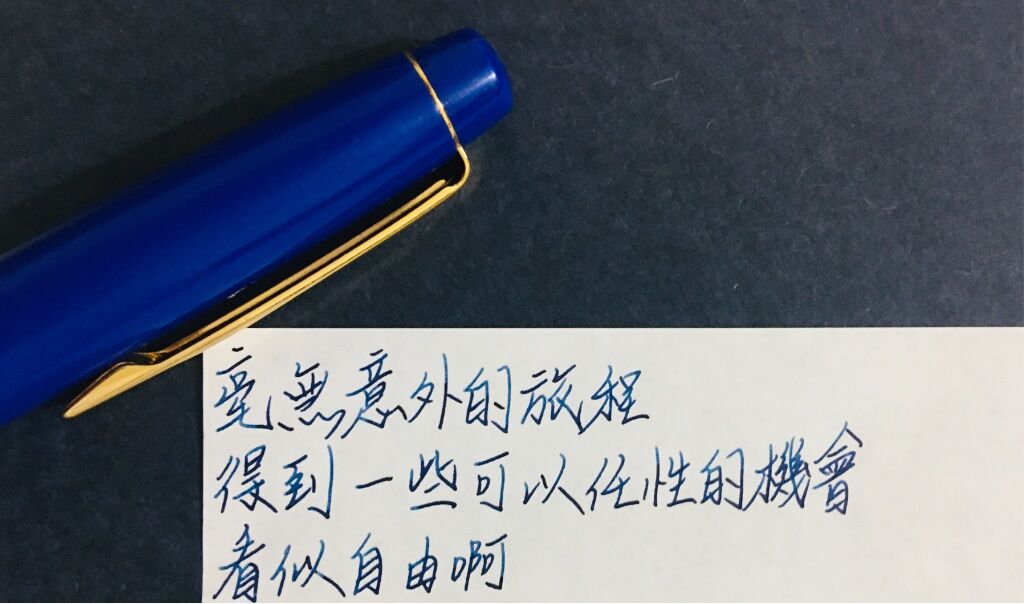 毫無意外的旅程
得到一些可以任性的機會
看似自由啊